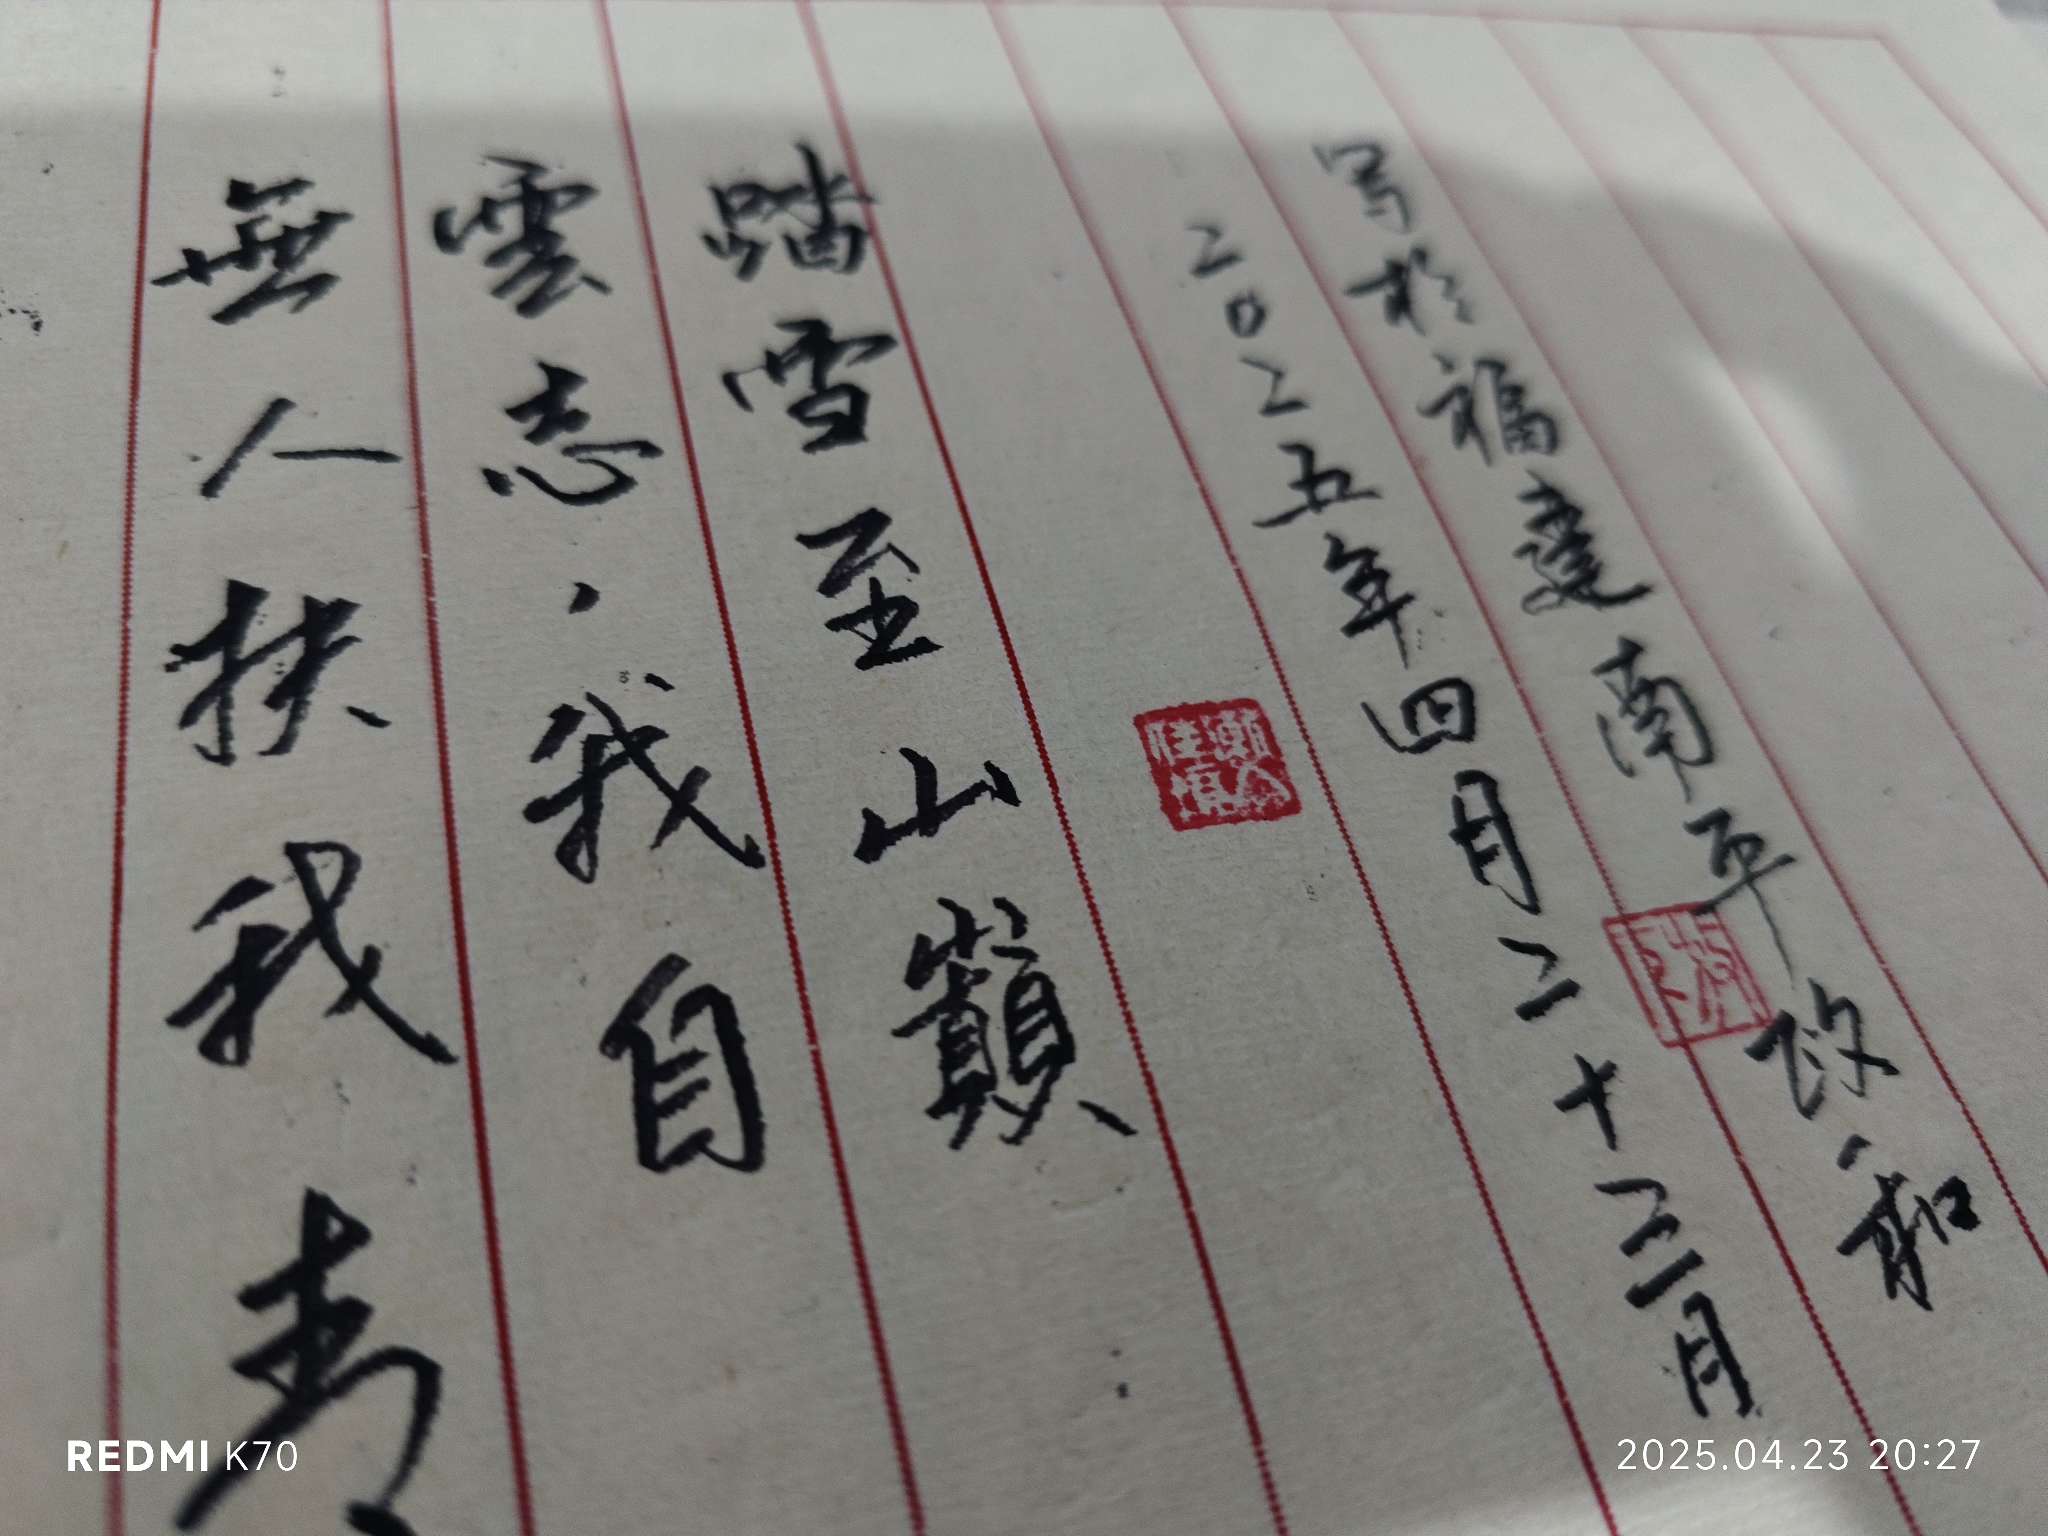 無人扶我青
雲志，我自
踏雪至山巔
二〇二五年四月二十三日
写於福建南平政和
REDMI K70
2025.04.23 20:27